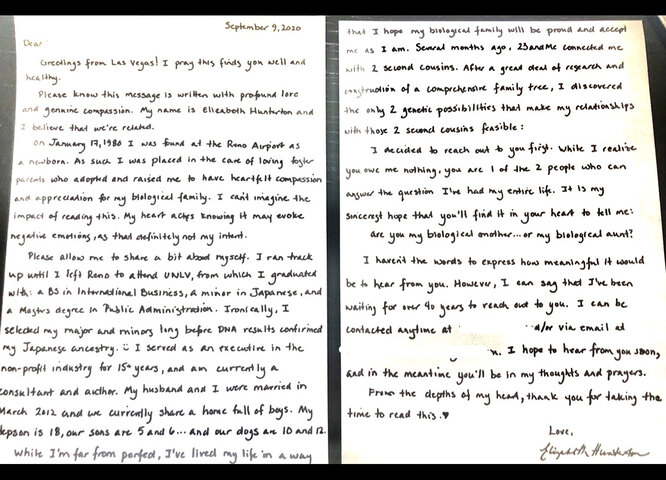 September 9, 2020
Dear
Greetings from Las Vegas! I pray this finds you well and
healthy.
Please know this message is written with profound love
and genuine compassion. My name is Elizabeth Hunterton and
I believe that we're related.
On January 17, 1980 I was found at the Reno Airport as
a newborn. As such I was placed in the care of loving foster
parents who adopted and raised me to have heartfelt compassion
and appreciation for my biological family. I can't imagine the
impact of reading this. My heart aches knowing it may evoke
negative emotions, as that definitely not my intent.
Please allow me to share a bit about myself. I ran track
up until I left Reno to attend UNLV, from which I graduated
with: a BS in International Business, a minor in Japanese, and
a Masters degree in Public Administration. Ironically, I
selected my major and minors long before DNA results confirmed
my Japanese ancestry. I served as an executive in the
non-profit industry for 15+ years, and am currently a
consultant and author. My husband and I were married in
March 2012 and we currently share a home full of boys. My
tepson is 18, our sons are 5 and 6... and our dogs are 10 and 12.
While I'm far from perfect, I've lived my life in a way
that I hope my biological family will be proud and accept
me as I am. Several months ago, 23andMe connected me
with 2 second cousins. After a great deal of research and
construction of a comprehensive family tree, I discovered
the only 2 genetic possibilities that make my relationships
with those 2 second cousins feasible:
I decided to reach out to you first. While I realize
you owe me nothing, you are 1 of the 2 people who can
answer the question I've had my entire life. It is my
sincerest hope that you'll find it in your heart to tell me:
are you my biological mother... or my biological aunt?
I haven't the words to express how meaningful it would
be to hear from you. However, I can say that I've been
waiting for over 40 years to reach out to you. I can be
contacted anytime at a/or via email at
I hope to hear from you soon,
and in the meantime you'll be in my thoughts and prayers.
From the depths of my head, thank you for taking the
time to read this.♥
Love,
Elizabeth Hunterton